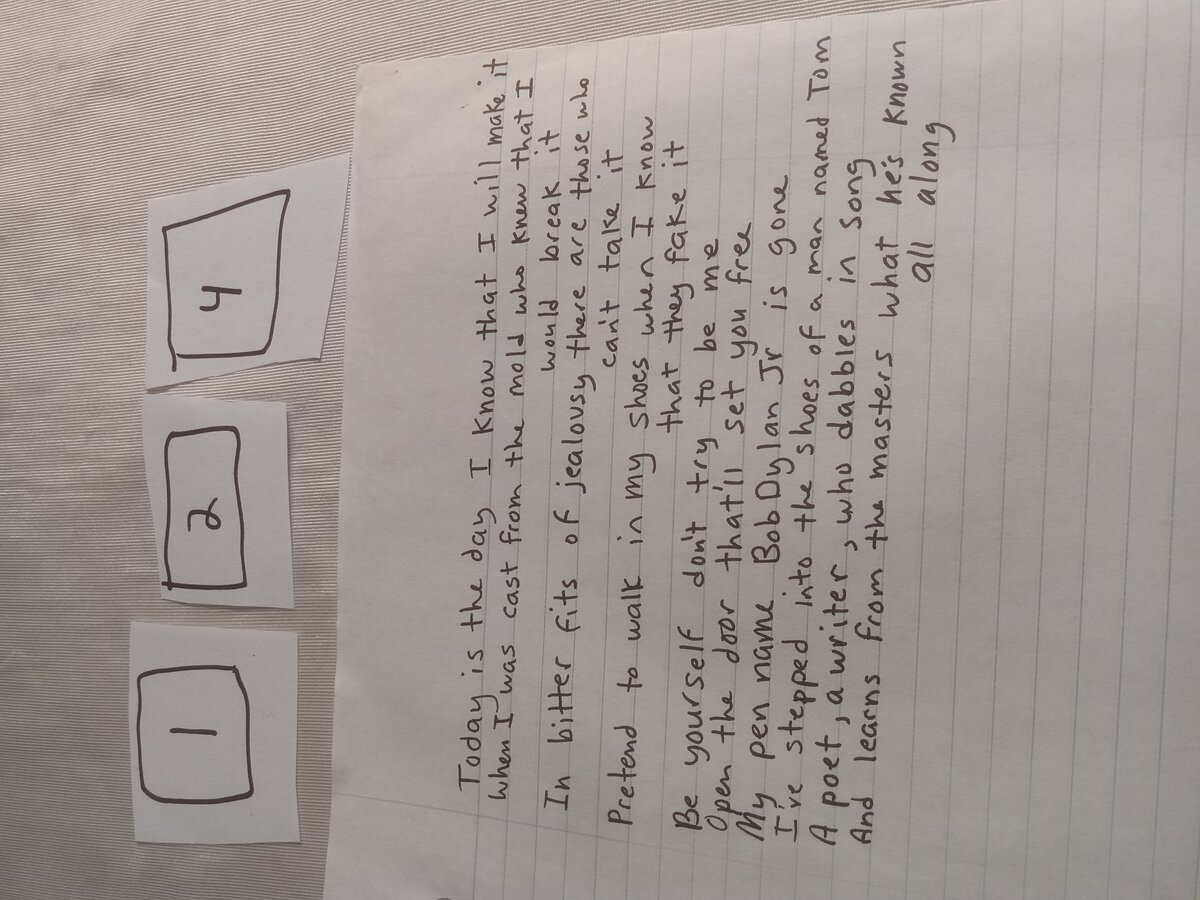 1
2
4
Today is the day I know that I will make it
When I was cast from the mold who knew that I
would break it
In bitter fits of jealousy there are those who
can't take it
Pretend to walk in my shoes when I know
that they fake it
Be yourself don't try to be me
Open the door that'll set you free
My pen name Bob Dylan Jr is gone
I've stepped into the shoes of a man named Tom
A poet, a writer, who dabbles in song
And learns from the masters what he's known
all along